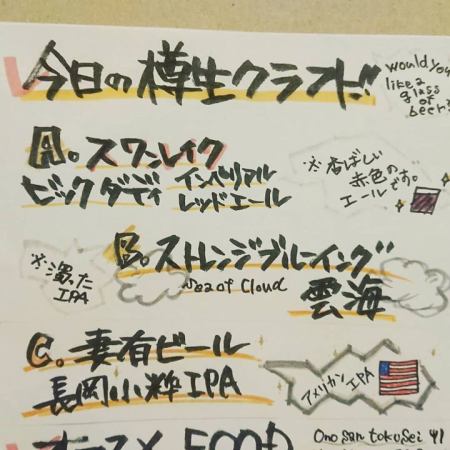 今日の樽生クラフト!!
would you
like a
glass
of
beer?
A. スワンレイク
ビックダディ インペリアル
レッドエール
※香ばしい
赤色の
エールです。
B. ストレンジブルーイング
Sea of Cloud
雲海
※濁った
IPA
C. 妻有ビール
長岡小粋IPA
アメリカンIPA
オススメ FOOD
Ono san tokusei